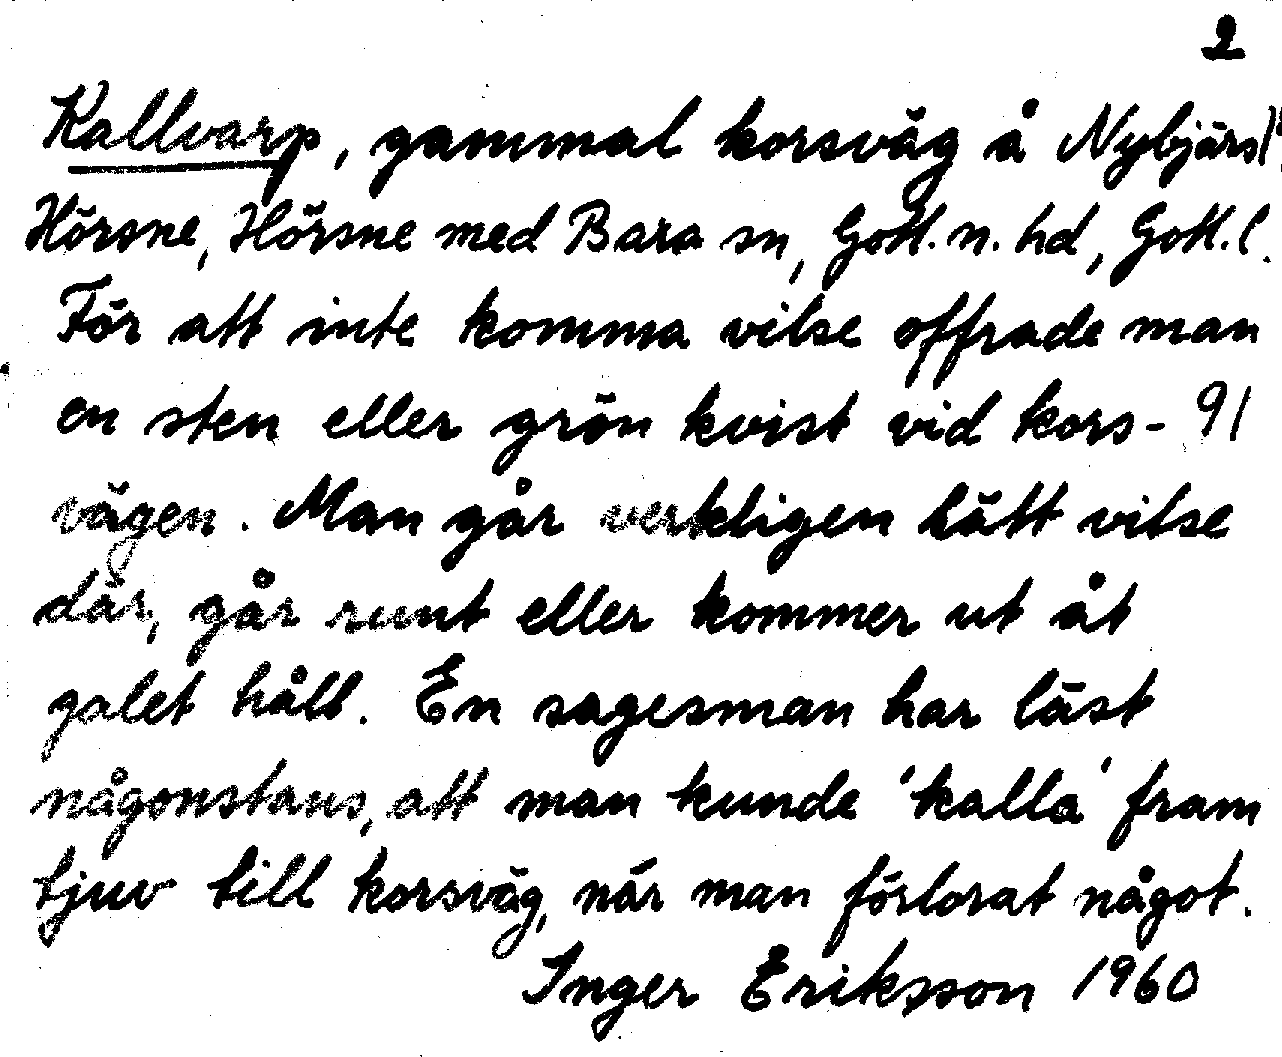 2
Kallvarp, gammal korsväg å Nybjärs 1¹
Hörsne, Hörsne med Bara sn, Gotl. n. hd, Gotl. l.
För att inte komma vilse offrade man
en sten eller grön kvist vid kors- 91
vägen. Man går verkligen lätt vilse
där, går runt eller kommer ut åt
galet håll. En sagesman har läst
någonstans, att man kunde 'kalla' fram
tjuv till korsväg, när man förlorat något.
Inger Eriksson 1960